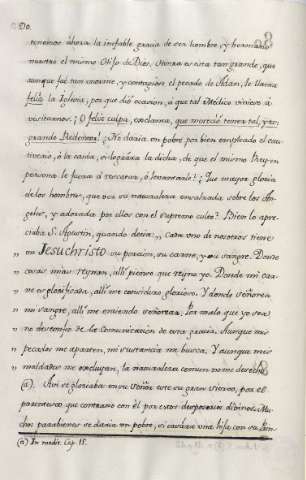 tenemos ahora la inefable gracia de ser hombre, y hermano
nuestro el mismo Hijo de Dios. Y tanta es esta tan grande, que
aunque fue tan enorme, y contagioso el pecado de Adan, le llama
feliz la Iglesia, por que dió ocasion, a que tal Médico viniese a
visitarnos. ¡O feliz culpa, exclama, que mereció tener tal, y tan
grande Redentor! ¿No daria un pobre por bien empleado el cau-
tiverio, ó la caida, si lograra la dicha, de que el mismo Rey en
persona le fuera á rescatar, ó levantarle? ¿Que mayor gloria
de los hombres, que ver su naturaleza ensalzada sobre los An-
geles, y adorada por ellos con el supremo culto? Bien lo apre-
ciaba S. Agustin, quando decia: „ Cada uno de nosotros tiene
„ en Jesuchristo su porcion, su carne, y su sangre. Donde
„ cara mia reynan, alli pienso que reyno yo. Donde mi car-
„ ne es glorificada, alli me considero glorioso. Y donde señorea
„ mi sangre, alli me entiendo señorear. Por malo que yo sea
„ no desconfio de la comunicacion de esta gracia. Aunque mis
„ pecados me aparten, mi sustancia me busca. Y aunque mis
„ maldades me excluyan, la naturaleza comun no me desecha
(a). Asi se gloriaba en su Señor este su gran siervo, por el
parentesco que contrajo con él por estar
parabienes se daria un pobre, si casara una hija con su Prín-
(a) In medit. Cap. 15.